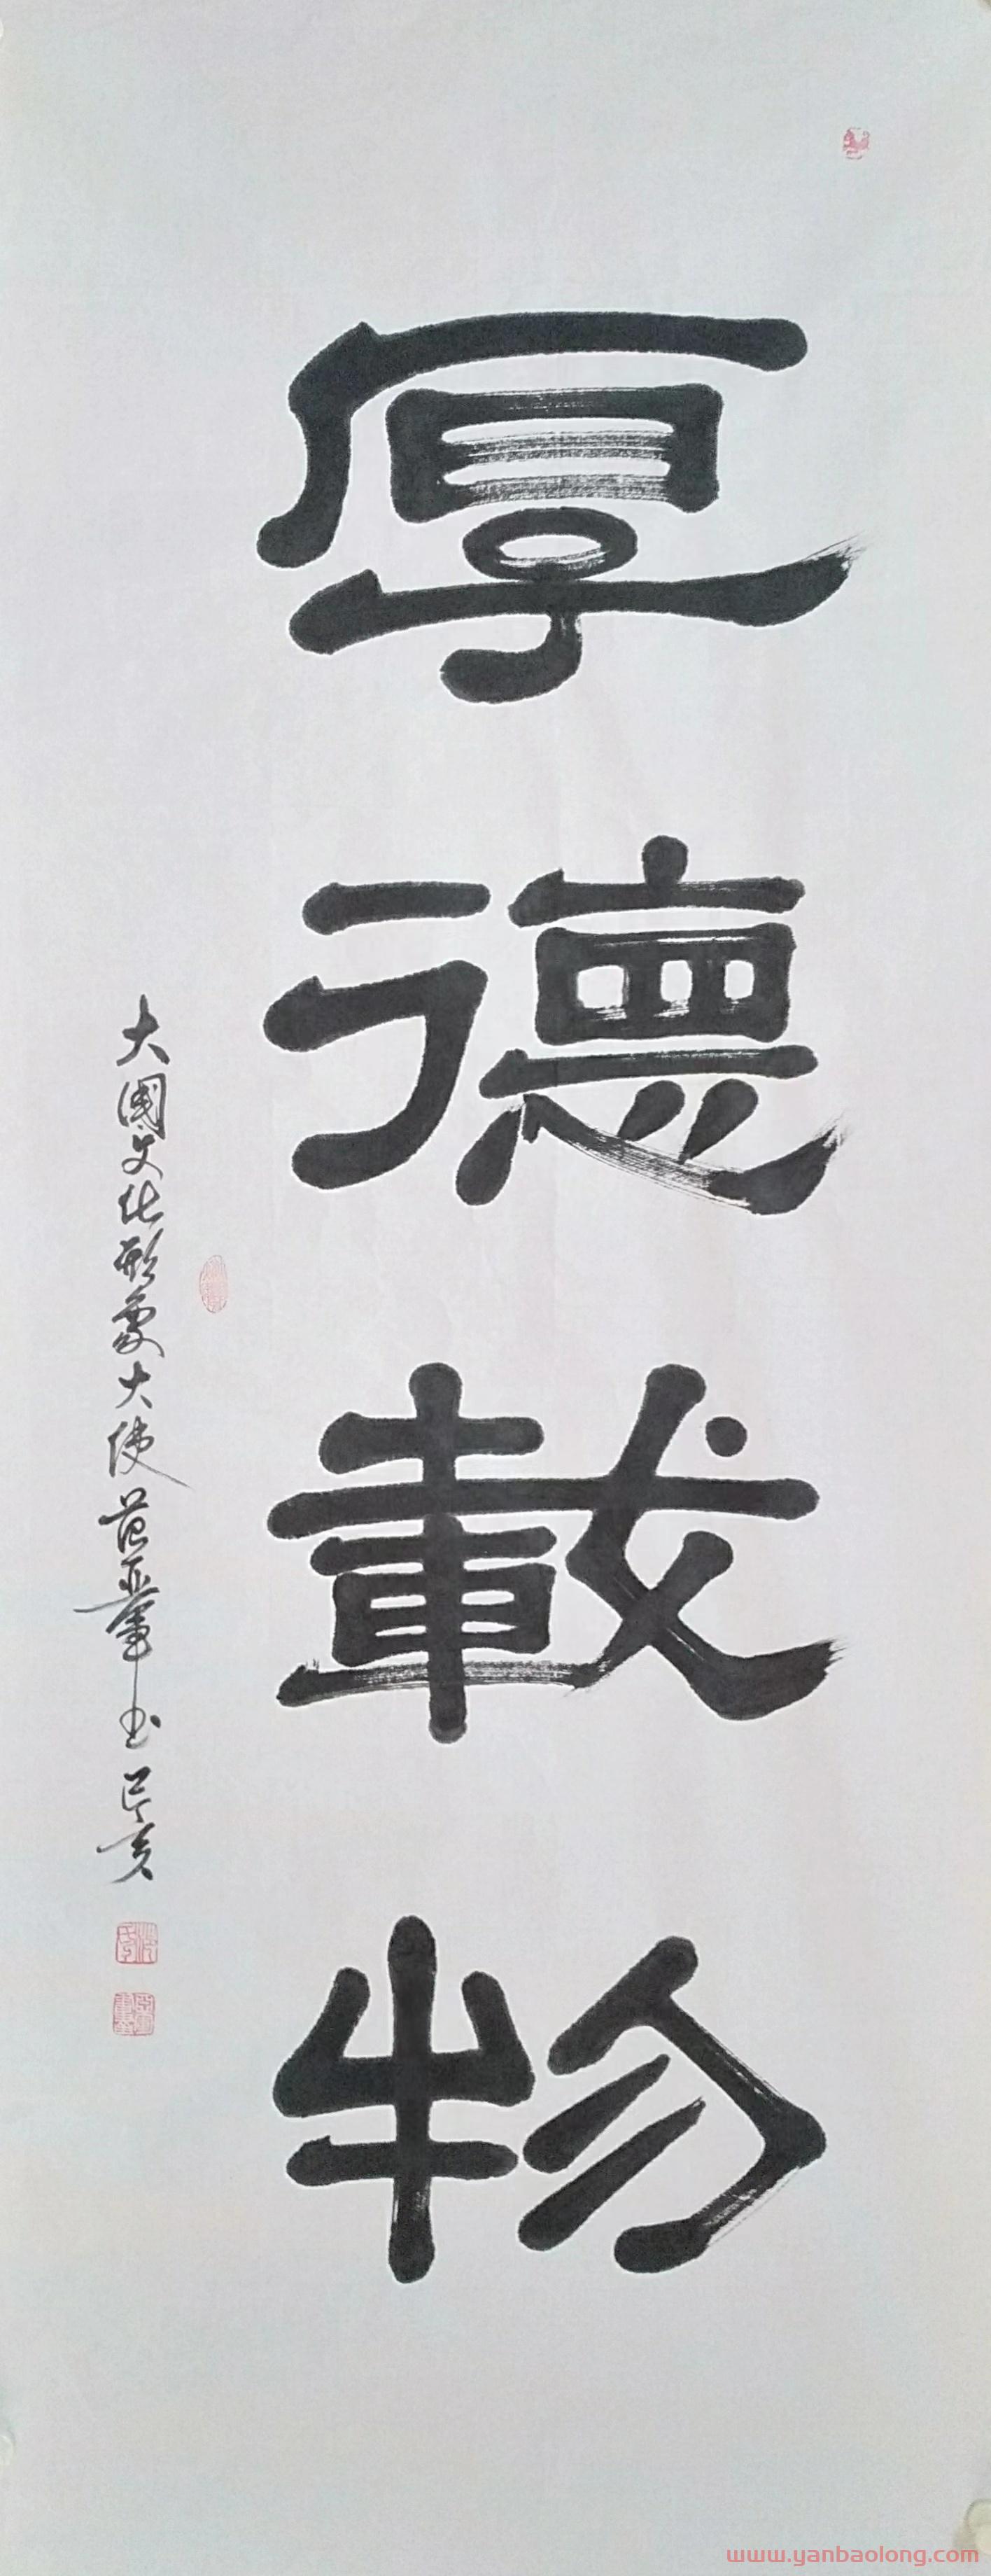 厚德載物
大國文化形象大使范亞軍书己亥
www.yanbaolong.com